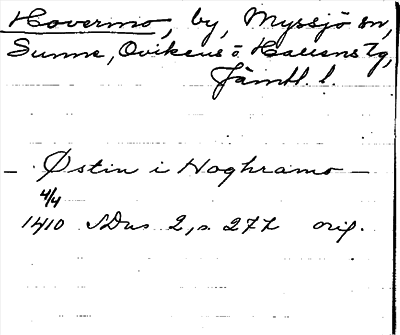 Hovermo, by, Myssjö sn,
Sunne, Ovikens o Hallens tg,
Jämtl. l.
– Østin i Hoghramo –
4/4
1410 SDns 2, s. 272 orig.